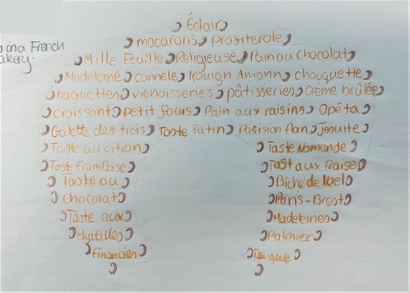 Éclair
macarons profiterole
ina French
akery.
Mille Feuille Religieuse Pain au Chocolat
Madeleine cannele Kouign Amann chouquette
baguettes vienoisseries pâtisseries Crème brûlée
croissant petit fours Pain aux raisins Opéra
Galette des trois Taste Tatin Parisian flan Jesuite
Taste au citron Taste Normande
Tast framboise Tast aux fraises
Taste au Bûche de Noel
Chocolat Paris-Brest
Taste aux Madeleines
Myrtilles Palmier
financiers